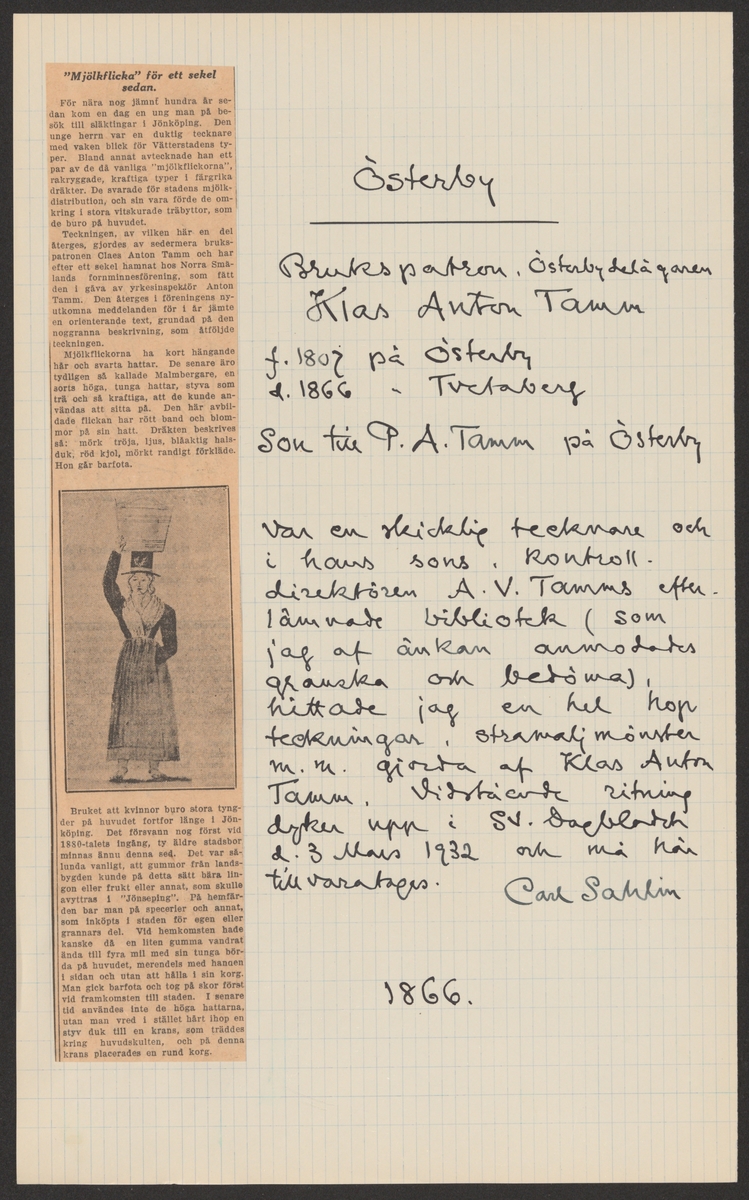 "Mjölkflicka" för ett sekel
sedan.
För nära nog jämnt hundra år se-
dan kom en dag en ung man på be-
sök till släktingar i Jönköping. Den
unge herrn var en duktig tecknare
med vaken blick för Vätterstadens ty-
per. Bland annat avtecknade han ett
par av de då vanliga "mjölkflickorna",
rakryggade, kraftiga typer i färgrika
dräkter. De svarade för stadens mjölk-
distribution, och sin vara förde de om-
kring i stora vitskurade träbyttor, som
de buro på huvudet.
Teckningen, av vilken här en del
återges, gjordes av sedermera bruks-
patronen Claes Anton Tamm och har
efter ett sekel hamnat hos Norra Små-
lands fornminnesförening, som fått
den i gåva av yrkesinspektör Anton
Tamm. Den återges i föreningens ny-
utkomna meddelanden för i år jämte
en orienterande text, grundad på den
noggranna beskrivning, som åtföljde
teckningen.
Mjölkflickorna ha kort hängande
hår och svarta hattar. De senare äro
tydligen så kallade Malmbergare, en
sorts höga, tunga hattar, styva som
trä och så kraftiga, att de kunde an-
vändas att sitta på. Den här avbil-
dade flickan har rött band och blom-
mor på sin hatt. Dräkten beskrives
så: mörk tröja, ljus, blåaktig hals-
duk, röd kjol, mörkt randigt förkläde.
Hon går barfota.
Bruket att kvinnor buro stora tyng-
der på huvudet fortfor länge i Jön-
köping. Det försvann nog först vid
1880-talets ingång, ty äldre stadsbor
minnas ännu denna sed. Det var så-
lunda vanligt, att gummor från lands-
bygden kunde på detta sätt bära lin-
gon eller frukt eller annat, som skulle
avyttras i "Jönseping". På hemfär-
den bar man på specerier och annat,
som inköpts i staden för egen eller
grannars del. Vid hemkomsten hade
kanske då en liten gumma vandrat
ända till fyra mil med sin tunga bör-
da på huvudet, merendels med handen
i sidan och utan att hålla i sin korg.
Man gick barfota och tog på skor först
vid framkomsten till staden. I senare
tid användes inte de höga hattarna,
utan man vred i stället hårt ihop en
styv duk till en krans, som träddes
kring huvudskulten, och på denna
krans placerades en rund korg.
Österby
Brukspatron, Österbydelägaren
Klas Anton Tamm
f. 1807 på Österby
d. 1866 " Tvetaberg
Son till P. A. Tamm på Österby
var en skicklig tecknare och
i hans sons, kontroll-
direktören A. V. Tamms efter-
lämnade bibliotek (som
jag af änkan anmodades
granska och bedöma),
hittade jag en hel hop
teckningar, stramaljmönster
m. m. gjorda af Klas Anton
Tamm. Vidstående ritning
dyker upp i Sv. Dagbladet
d. 3 Mars 1932 och må här
tillvaratages.
Carl Sahlin
1866.